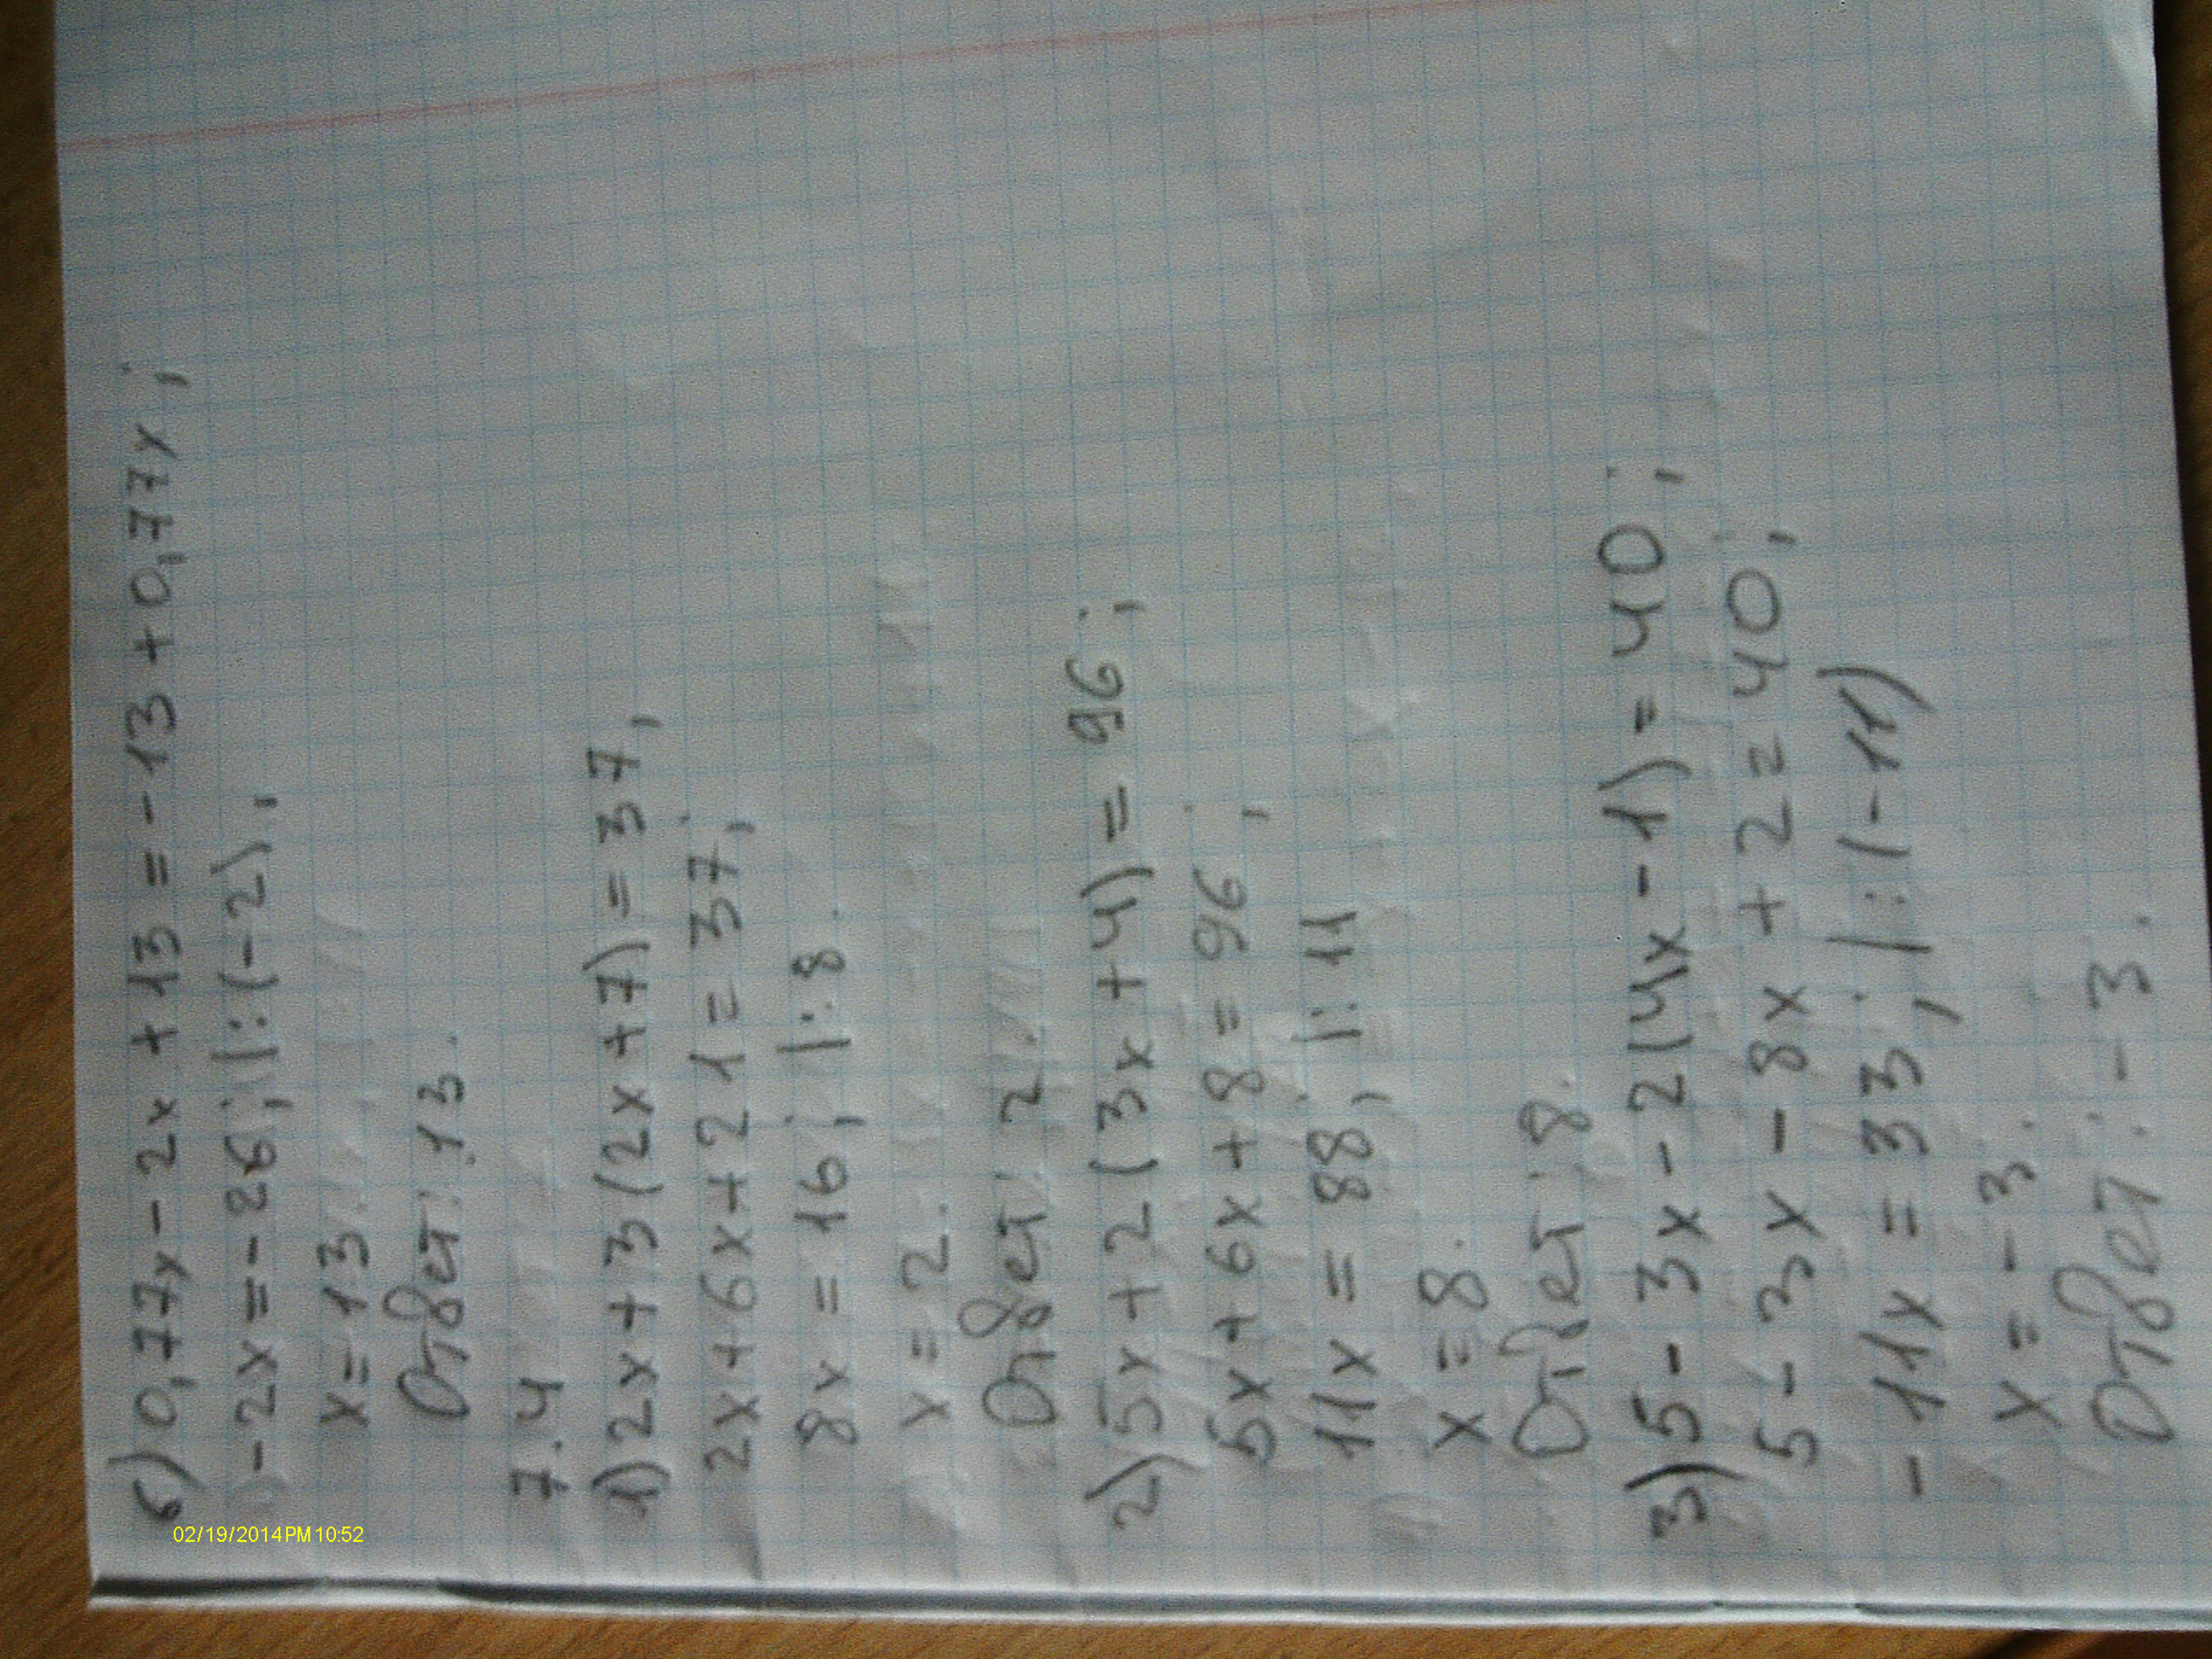 6) 0,77x - 2x + 13 = -13 + 0,77x;
-2x = -26; |:(-2);
x = 13.
Ответ: 13.
7.4
1) 2x + 3(2x + 7) = 37,
2x + 6x + 21 = 37;
8x = 16; |:8.
x = 2.
Ответ: 2.
2) 5x + 2(3x + 4) = 96;
5x + 6x + 8 = 96;
11x = 88; |: 11
x = 8.
Ответ: 8.
3) 5 - 3x - 2(4x - 1) = 40;
5 - 3x - 8x + 2 = 40;
-11x = 33; |:(-11)
x = -3.
Ответ: -3.
02/19/2014PM10:52